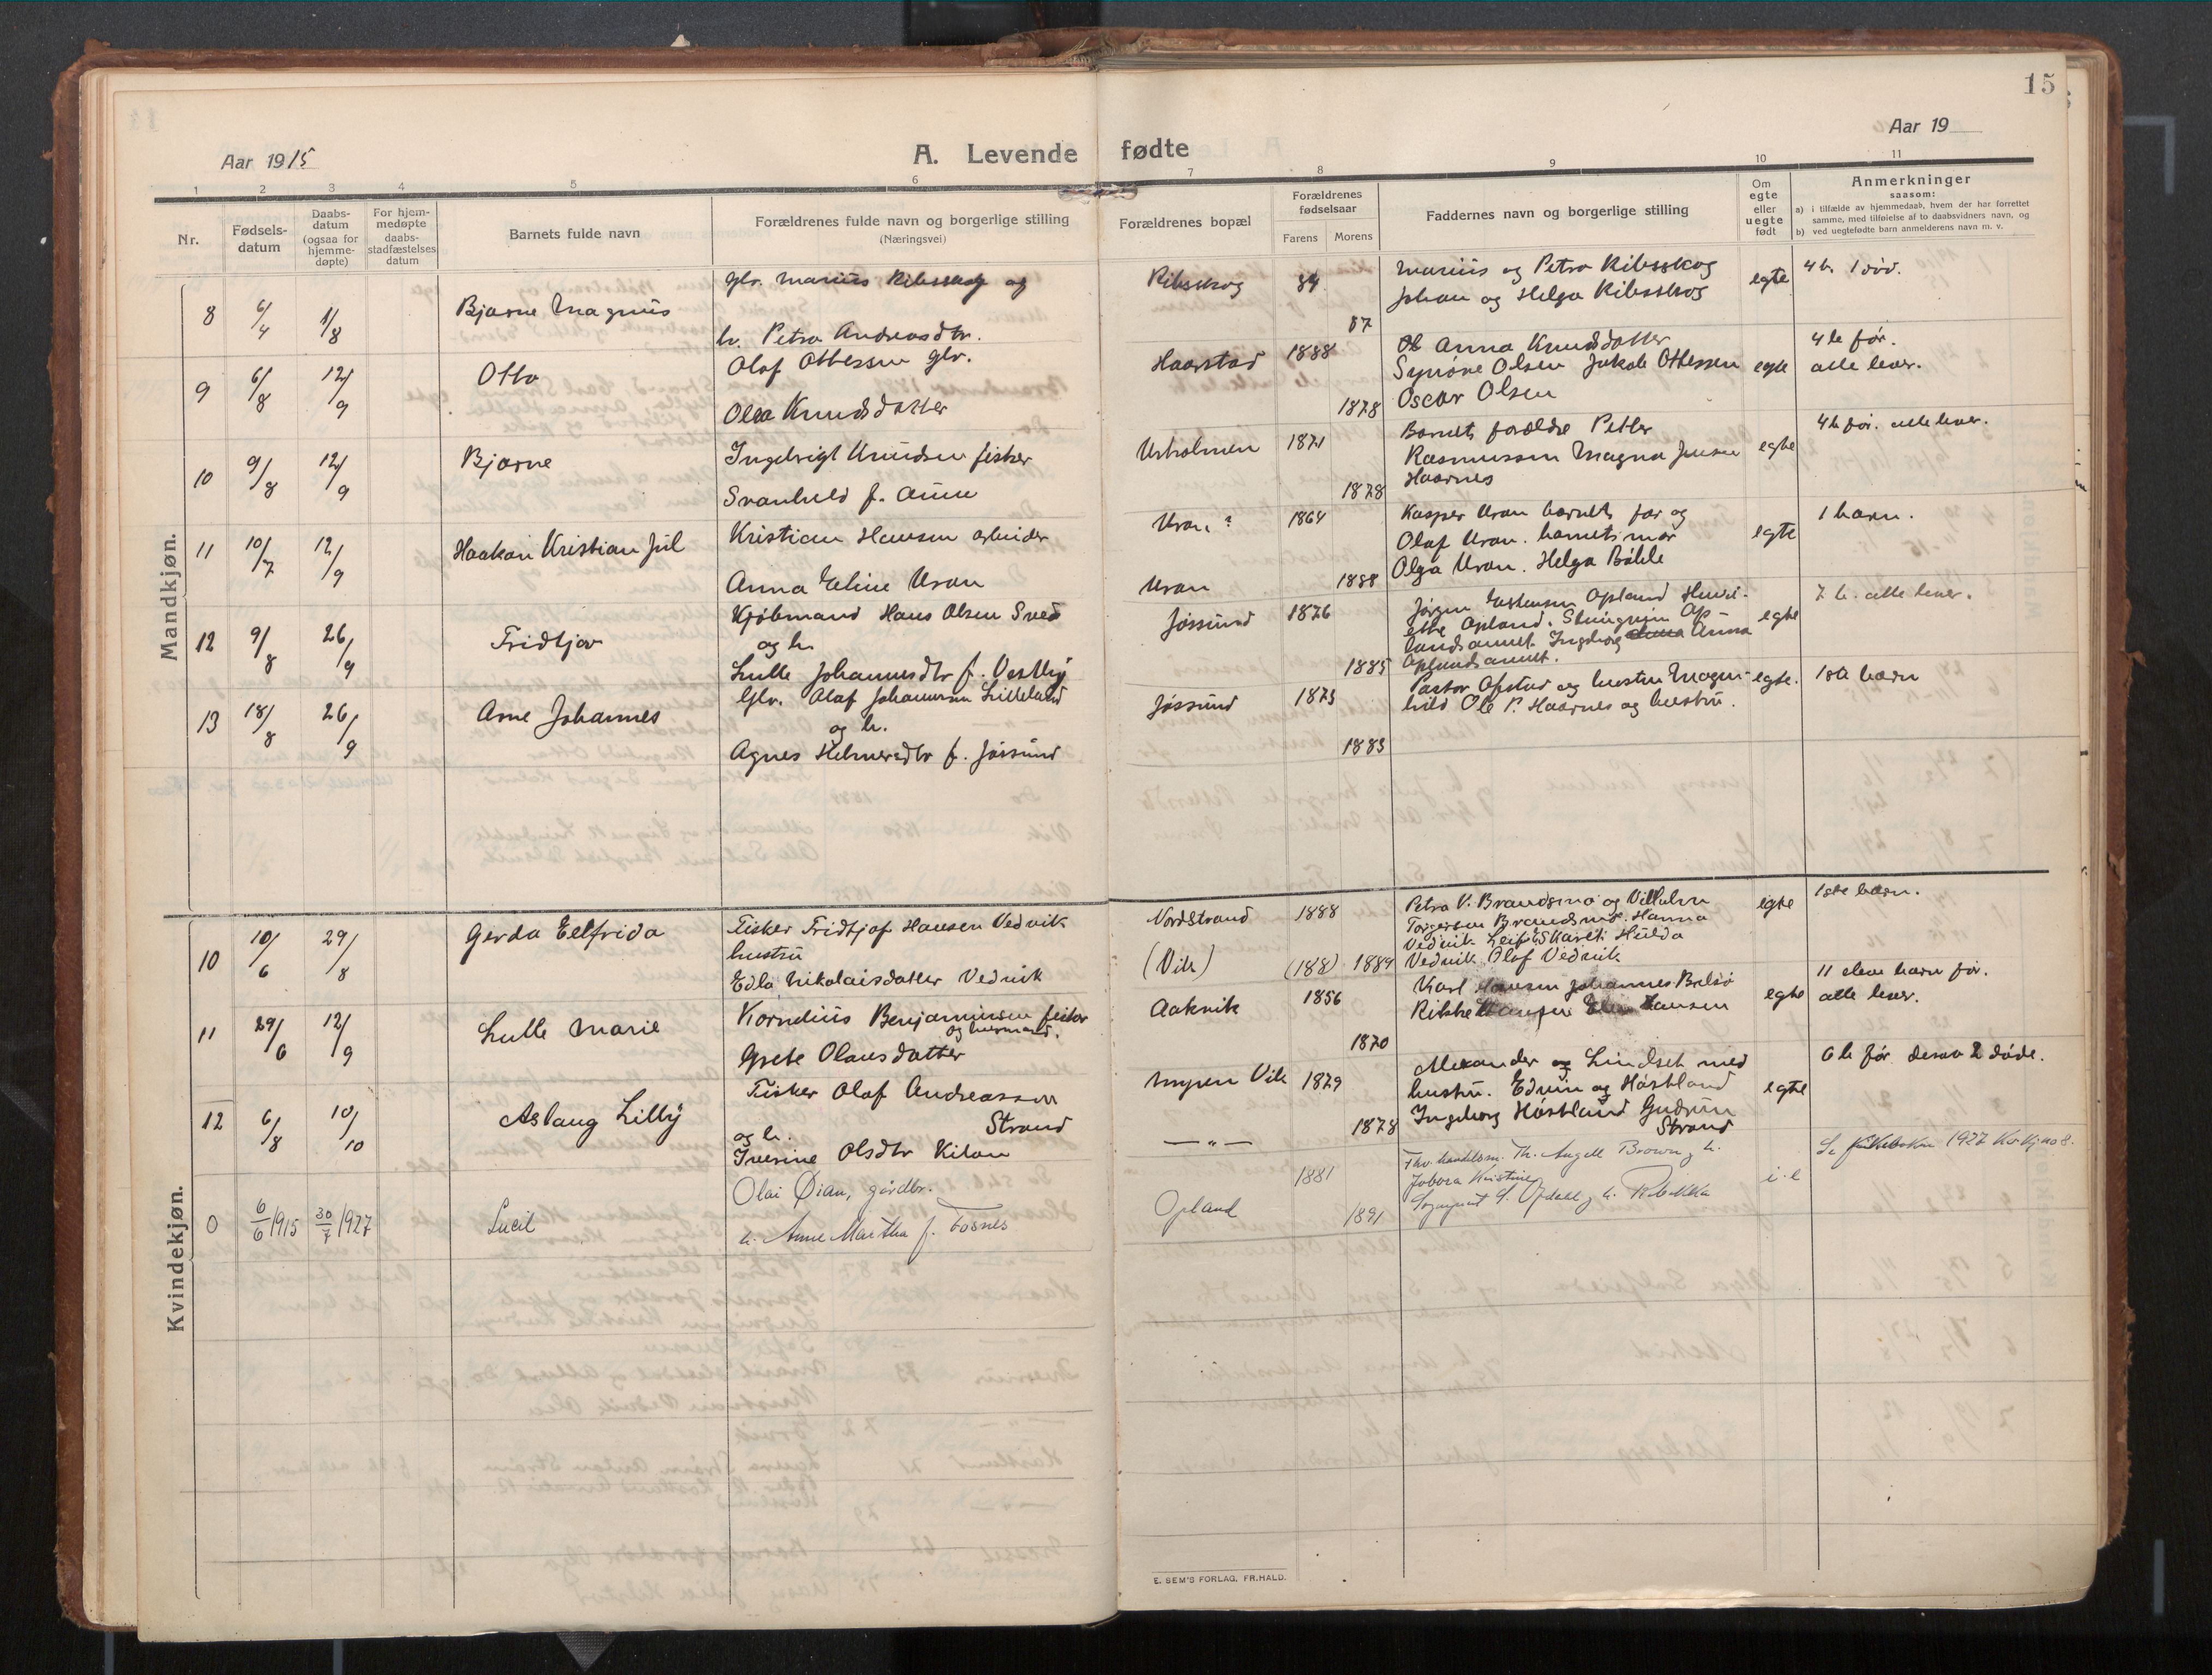 15
Aar 1915
A. Levende fødte
Aar 19
1 2 3 4 5 6 7 8 9 10 11
Nr.
Fødsels-
datum
Daabs-
datum
(ogsaa for
hjemme-
døpte)
For hjem-
medøpte
daabs-
stadfæstelses
datum
Barnets fulde navn
Forældrenes fulde navn og borgerlige stilling
(Næringsvei)
Forældrenes bopæl
Forældrenes
fødselsaar
Farens Morens
Faddernes navn og borgerlige stilling
Om
egte
eller
uegte
født
Anmerkninger
saasom:
a) i tilfælde av hjemmedaab, hvem der har forrettet
samme, med tilføielse af to daabsvidners navn, og
b) ved uegtefødte barn anmelderens navn m. v.
Mandkjøn.
8 6/4 1/8 Bjarne Magnus
glr. Marius Ribsskog og
h. Petra Andreasdtr.
Ribsskog 84
87
Marius og Petra Ribsskog
Johan og Helga Ribsskog
egte
4 b. 1 død.
9 6/8 12/9 Otto
Olaf Ottessen glr.
Olea Knudsdatter
Haarstad 1888
1878
Ol Anna Knudsdatter
Synøve Olsen Jakob Ottessen
Oscar Olsen
egte
4 b før.
alle lever.
10 9/8 12/9 Bjarne
Ingebrigt Knudsen fisker
Svanhild f. Aune
Urholmen 1871
1878
Barnets forældre Petter
Rasmussen Magna Jensen
Haarnes
egte
4 b før. alle lever.
11 10/7 12/9 Haakon Kristian Jul
Kristian Hansen arbeider
Anna Eline Uran
Uran ? 1864
Uran 1888
Kasper Uran barnets far og
Olaf Uran. barnets mor
Olga Uran. Helga Bøhle
egte
1 barn.
12 9/8 26/9 Fridtjov
Kjøbmand Hans Olsen Sved
og h.
Lulle Johannesdtr f. Vestby
Jøssund 1876
1885
Jørgen Opland
Opland.
Ingeborg Anna
egte
7 b. alle lever.
13 18/8 26/9 Arne Johannes
Glr. Olaf Johannesen Lilleland
og h.
Agnes Helmersdtr f. Jøssund
Jøssund 1873
1883
Pastor Opstad og hustru Magn-
hild Ole P. Haarnes og hustru.
egte.
1ste barn
Kvindekjøn.
10 10/6 29/8 Gerda Elfrida
Fisker Fridtjof Hansen Vedvik
hustru
Edla Nikolaisdatter Vedvik
Nordstrand 1888
(Vik) (188) 1884
Petra V. Brandsmo og Vilhelm
Torgersen Brandsmo. Hanna
Vedvik Leif Hulda
Vedvik Olaf Vedvik
egte
1ste barn.
11 29/6 12/9 Lulle Marie
Kornelius Benjaminsen fisker
og husmand.
Grete Olausdatter
Aakvik 1856
1870
Karl Hansen Johannes
Rikke Hansen
egte
11 barn før.
alle lever.
12 6/8 10/10 Aslaug Lilly
Fisker Olaf Andreassen
Strand
og h.
Iverine Olsdtr Kilan
Vik 1879
— " — 1878
Alexander og Lindset med
hustru. Edvin og Høstland
Ingeborg Høstland Gudrun
Strand
egte
6 b før derav 2 døde.
0 6/6 1915 30/7 1927 Lucil
Olai Øian, gårdbr.
h. Anne Martha f. Fosnes
1881
Opland 1891
Th. Angell Brown og h.
Jobora Kristine
S. Opdal og h. Rebekka
i.e
Se 1927
E. SEM'S FORLAG. FR.HALD.